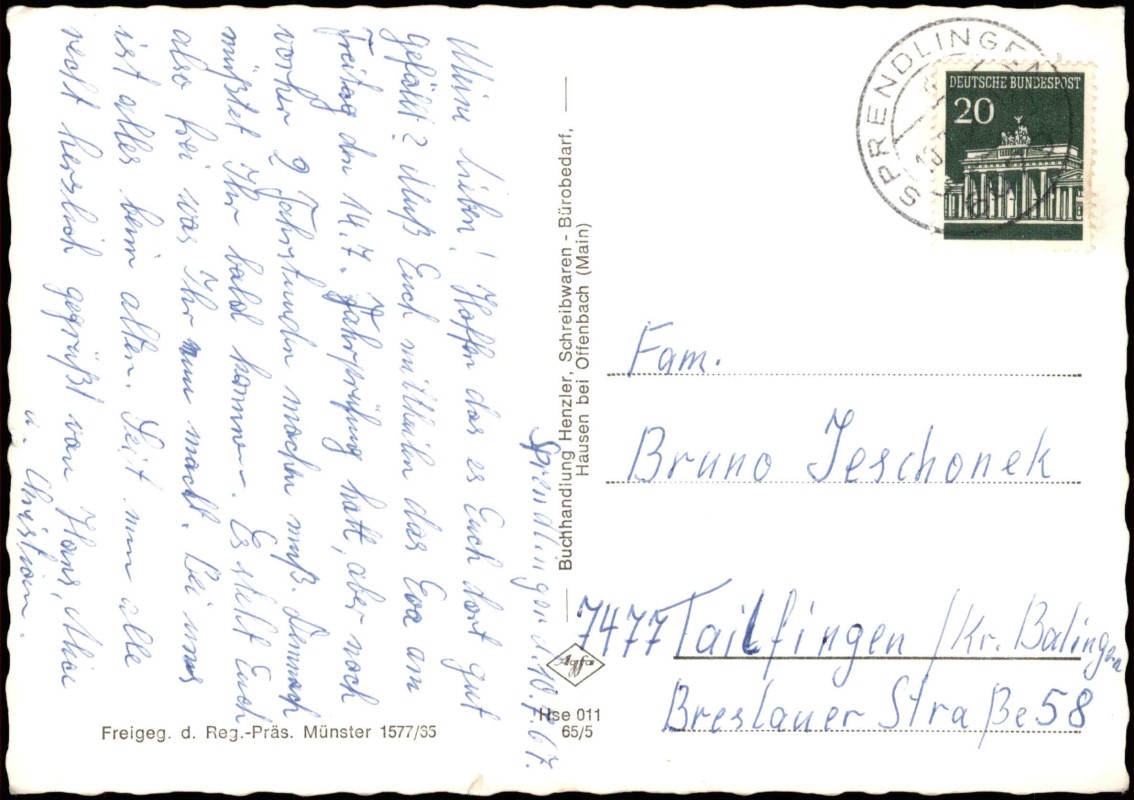 Sprendlingen d. 10.7.67.
Meine Lieben! Hoffen das es Euch dort gut
gefällt? Muß Euch mitteilen das Eva am
Freitag den 14.7. Fahrprüfung hatt, aber noch
vorher 2 Fahrstunden machen muß. Demnach
müßtet Ihr bald kommen. Es steht Euch
also frei was Ihr nun macht. Bei uns
ist alles beim alten. Seit nun alle
recht herzlich gegrüßt von Hans,
u. Christian.
Buchhandlung Henzler, Schreibwaren - Bürobedarf,
Hausen bei Offenbach (Main)
Agfa
Hse 011
65/5
Freigeg. d. Reg.-Präs. Münster 1577/65
SPRENDLINGEN
DEUTSCHE BUNDESPOST
20
Fam.
Bruno Jeschonek
7477 Tailfingen /Kr. Balingen
Breslauer Straße 58